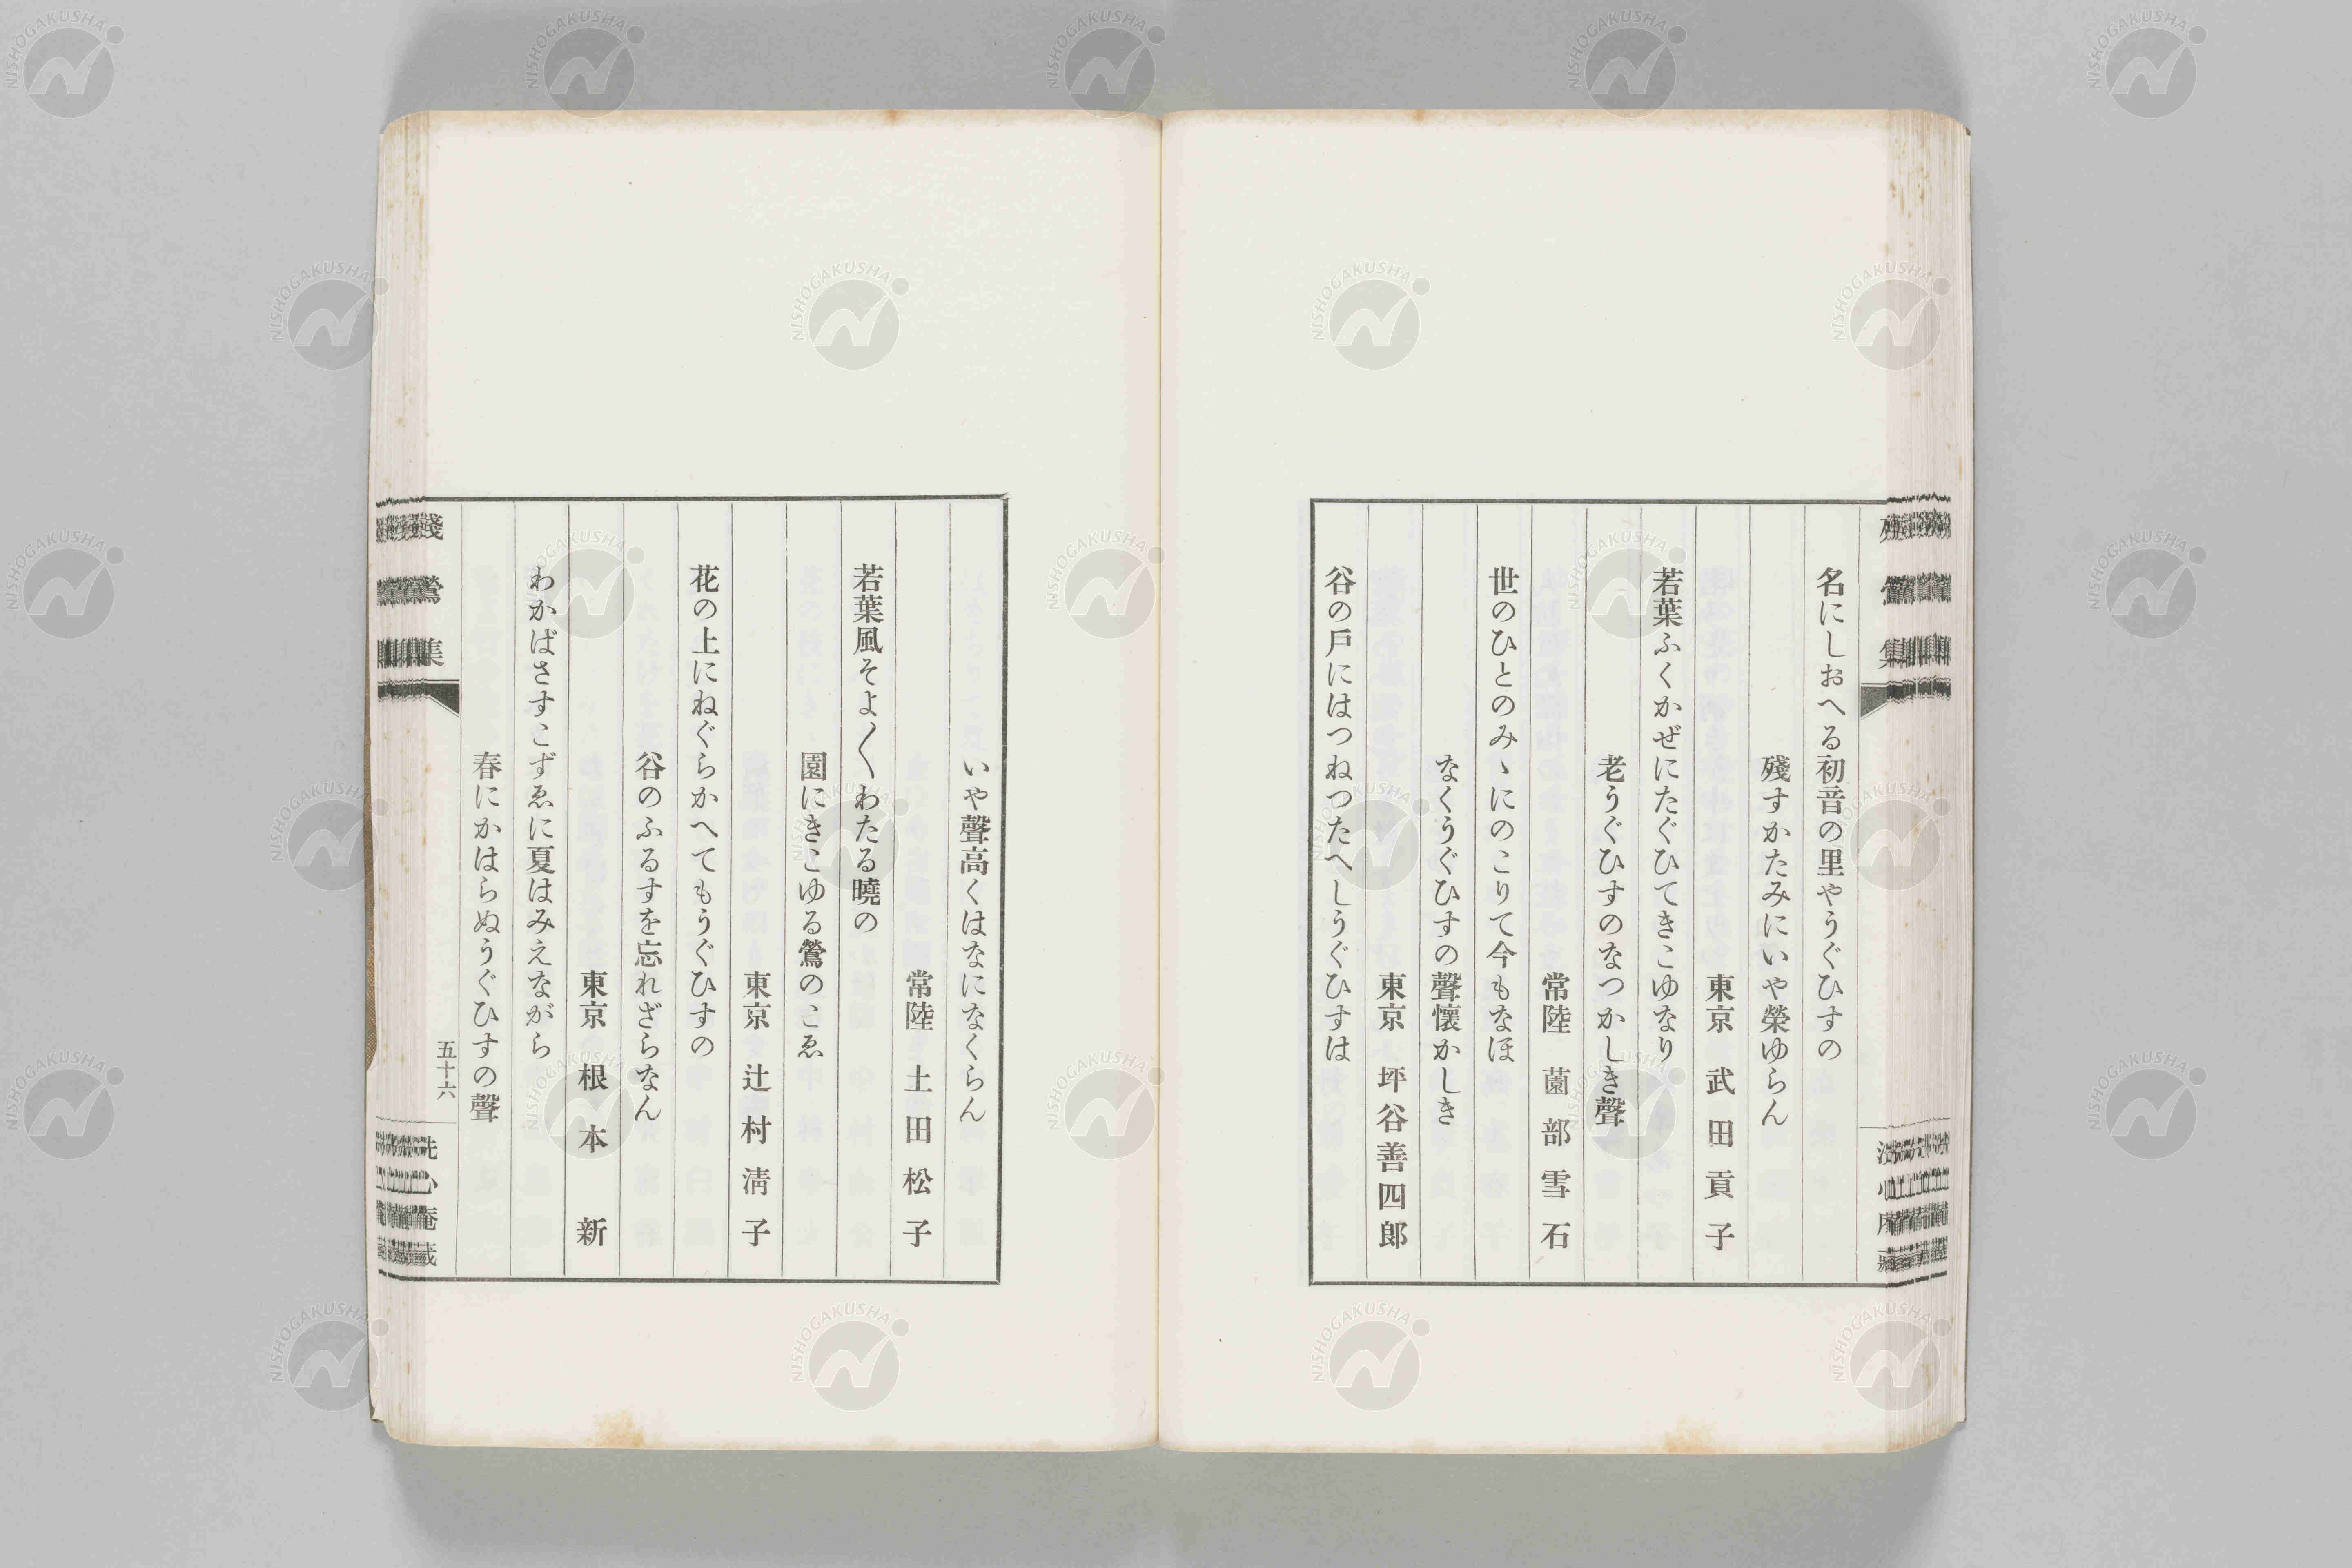 名にしおへる初音の里やうぐひすの
殘すかたみにいや榮ゆらん
東京 武田貢子
若葉ふくかぜにたぐひてきこゆなり
老うぐひすのなつかしき聲
常陸 薗部雪石
世のひとのみゝにのこりて今もなほ
なくうぐひすの聲懷かしき
東京 坪谷善四郎
谷の戸にはつねつたへしうぐひすは
いや聲高くはなになくらん
常陸 土田松子
若葉風そよ〱わたる曉の
園にきこゆる鶯のこゑ
東京 辻村淸子
花の上にねぐらかへてもうぐひすの
谷のふるすを忘れざらなん
東京 根本新
わかばさすこずゑに夏はみえながら
春にかはらぬうぐひすの聲
殘鶯集
五十六
NISHOGAKUSHA